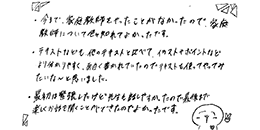 ・今まで、家庭教師をやったことがなかったので、家庭
教師について色々知れてよかったです。
・テキストなども他のテキストに比べて、イラストやポイントなど
より分かりやすく、面白く書かれていたのでテキストも使ってやってみ
たいな〜と思いました。
・最初は緊張したけど先生も話しやすかったので最後まで
楽しくお話を聞くことができたのでよかったです。